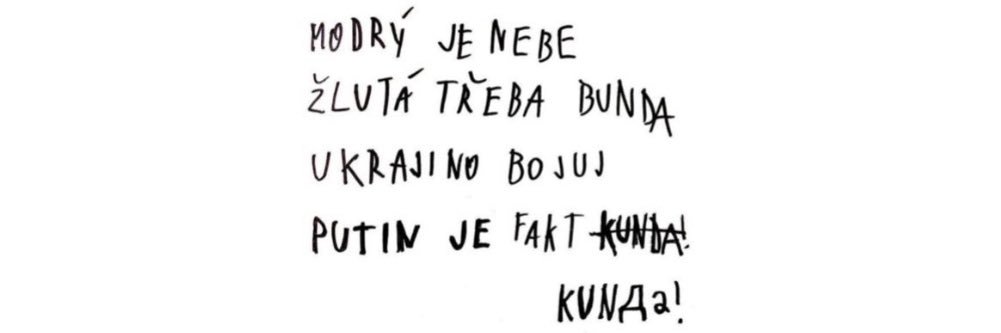 MODRÝ JE NEBE
ŽLUTÁ TŘEBA BUNDA
UKRAJINO BOJUJ
PUTIN JE FAKT KUNDA!
KUNДa!